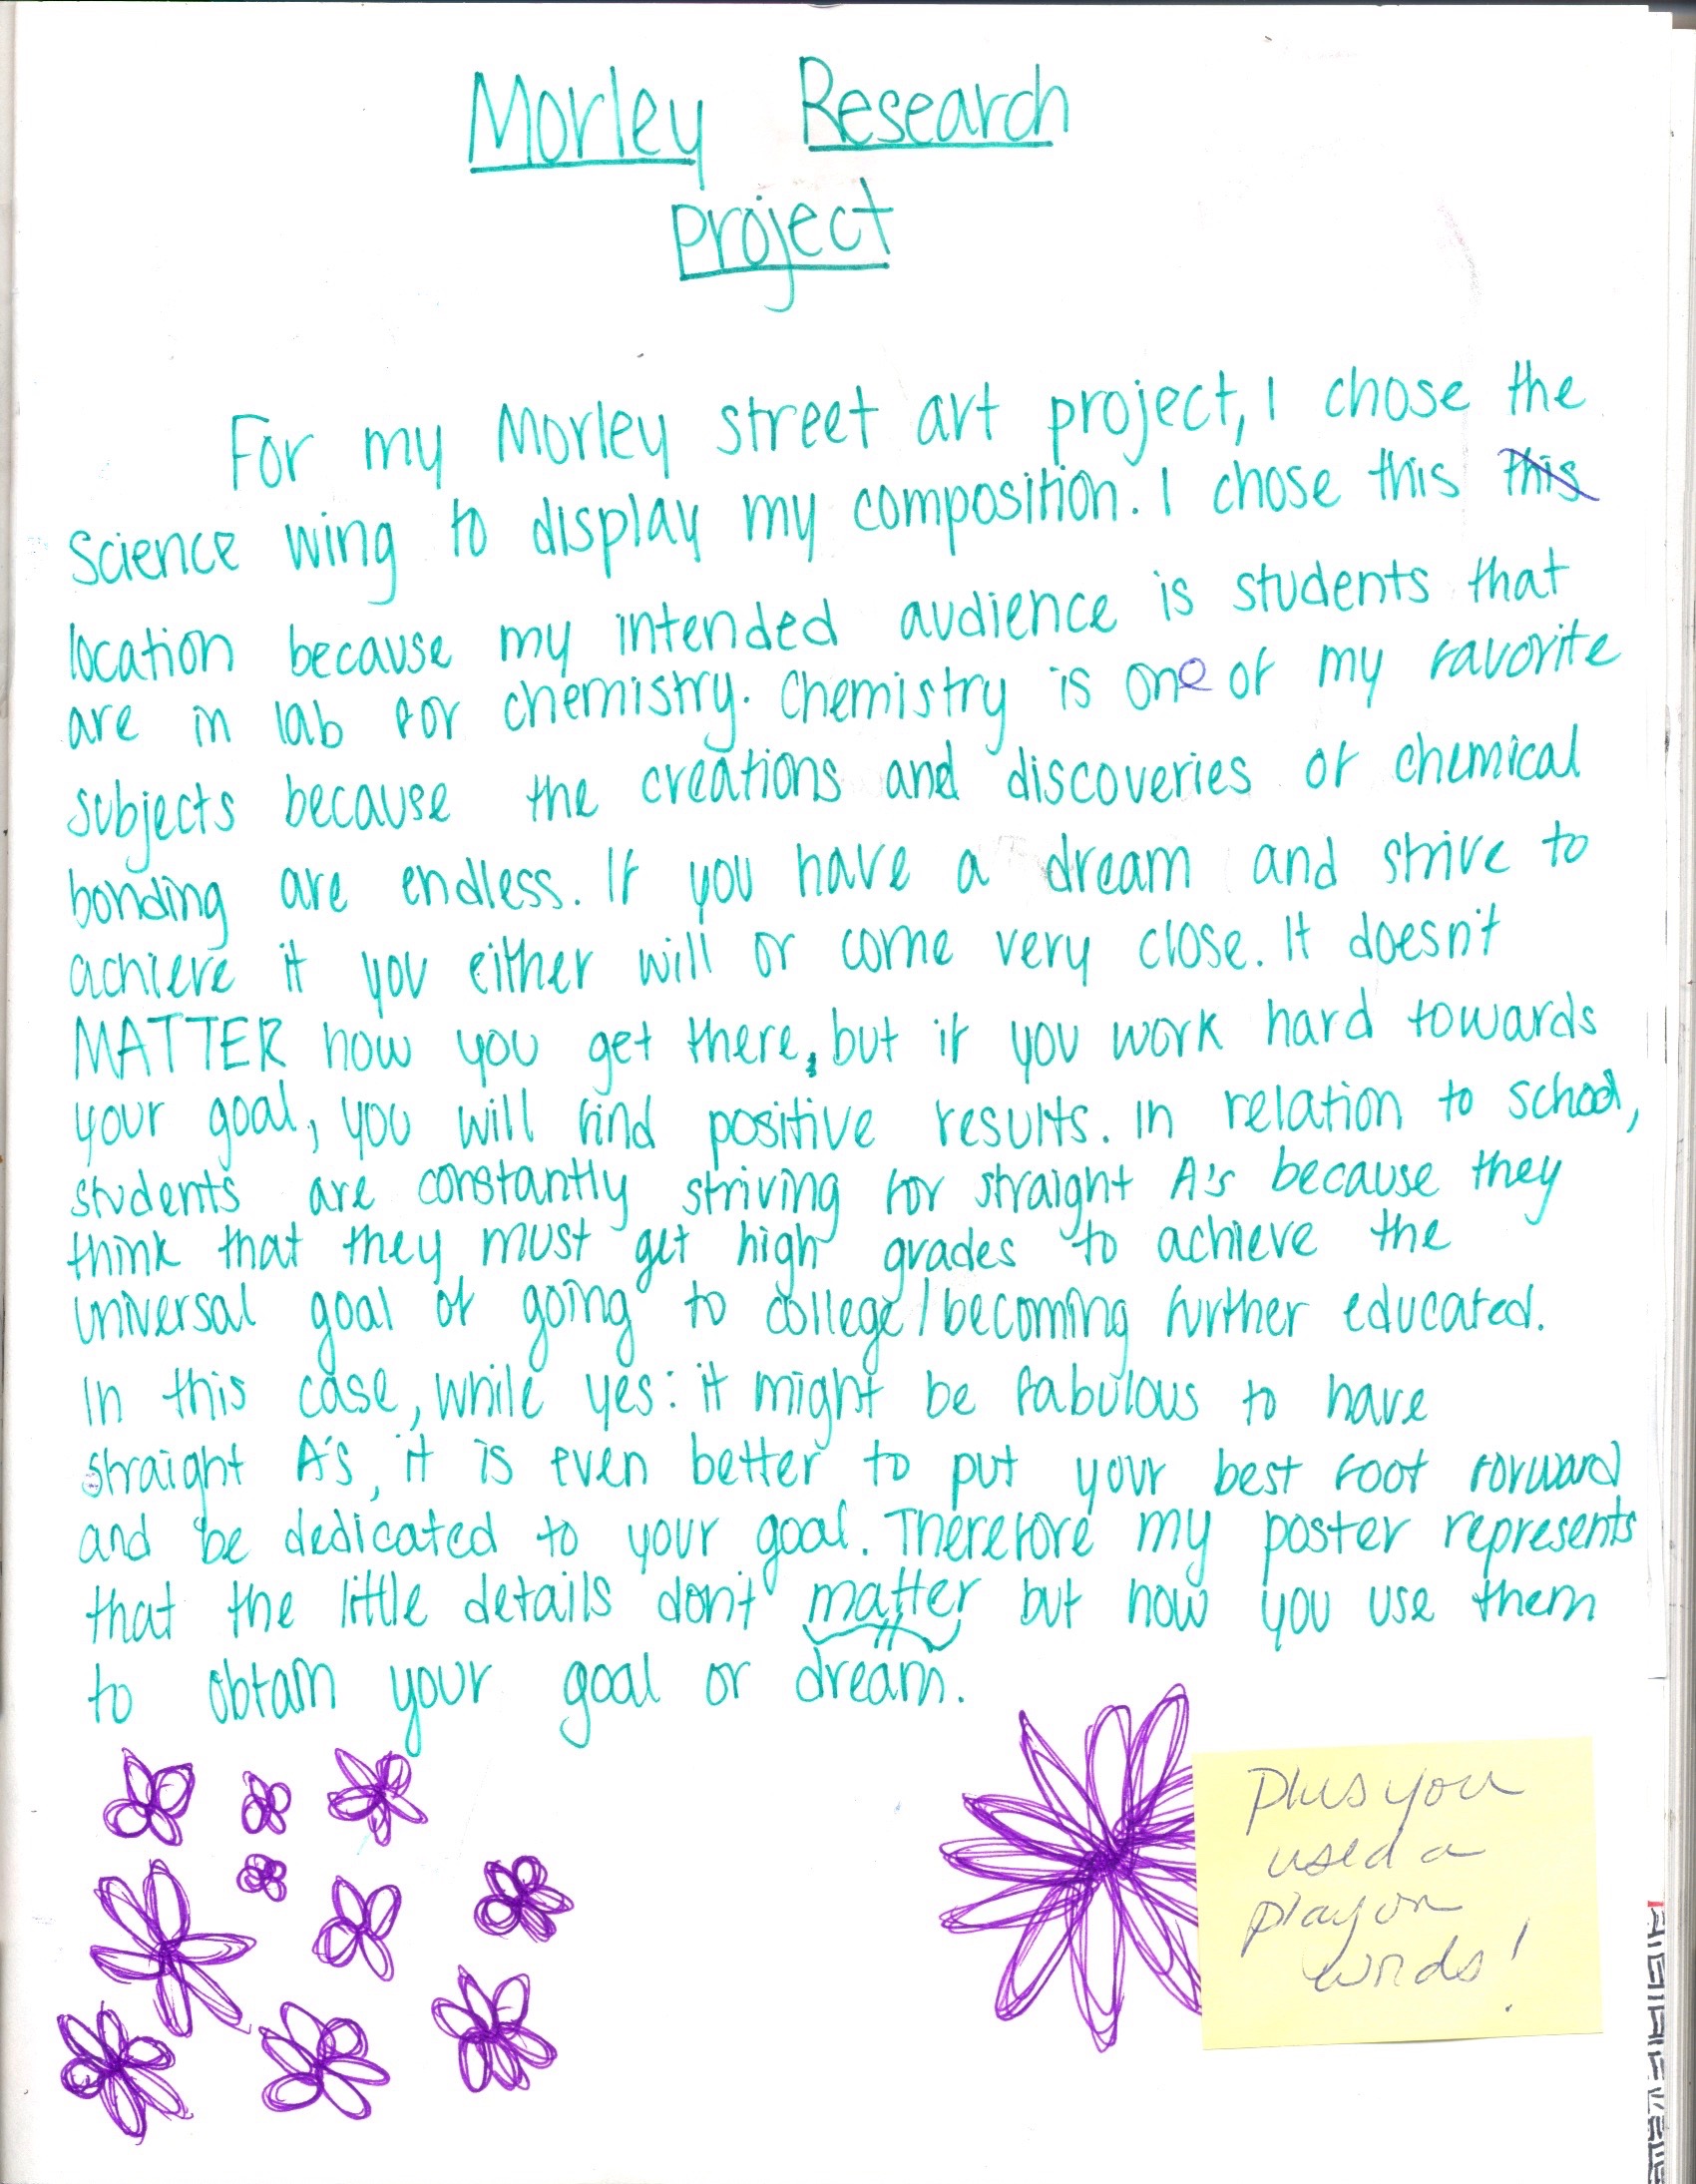 Morley Research
Project
For my Morley street art project, I chose the
science wing to display my composition. I chose this this
location because my intended audience is students that
are in lab for chemistry. Chemistry is one of my favorite
subjects because the creations and discoveries of chemical
bonding are endless. If you have a dream and strive to
achieve it you either will or come very close. It doesn't
MATTER how you get there, but if you work hard towards
your goal, you will find positive results. In relation to school,
students are constantly striving for straight A's because they
think that they must get high grades to achieve the
universal goal of going to college/becoming further educated.
In this case, while yes: it might be fabulous to have
straight A's, it is even better to put your best foot forward
and be dedicated to your goal. Therefore my poster represents
that the little details don't matter but how you use them
to obtain your goal or dream.
Plus you
used a
play on
words!